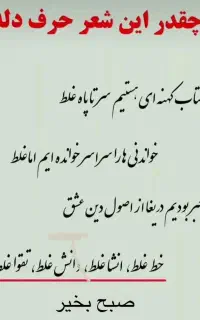 چقدر این شعر حرف دله
کهنه ای هستیم سر تا پا غلط
خواندنی ها را سراسر خوانده ایم اما غلط
بودیم دریغا از اصول دین عشق
خط غلط، انشا غلط، دانش غلط، تقوا غلط
صبح بخیر